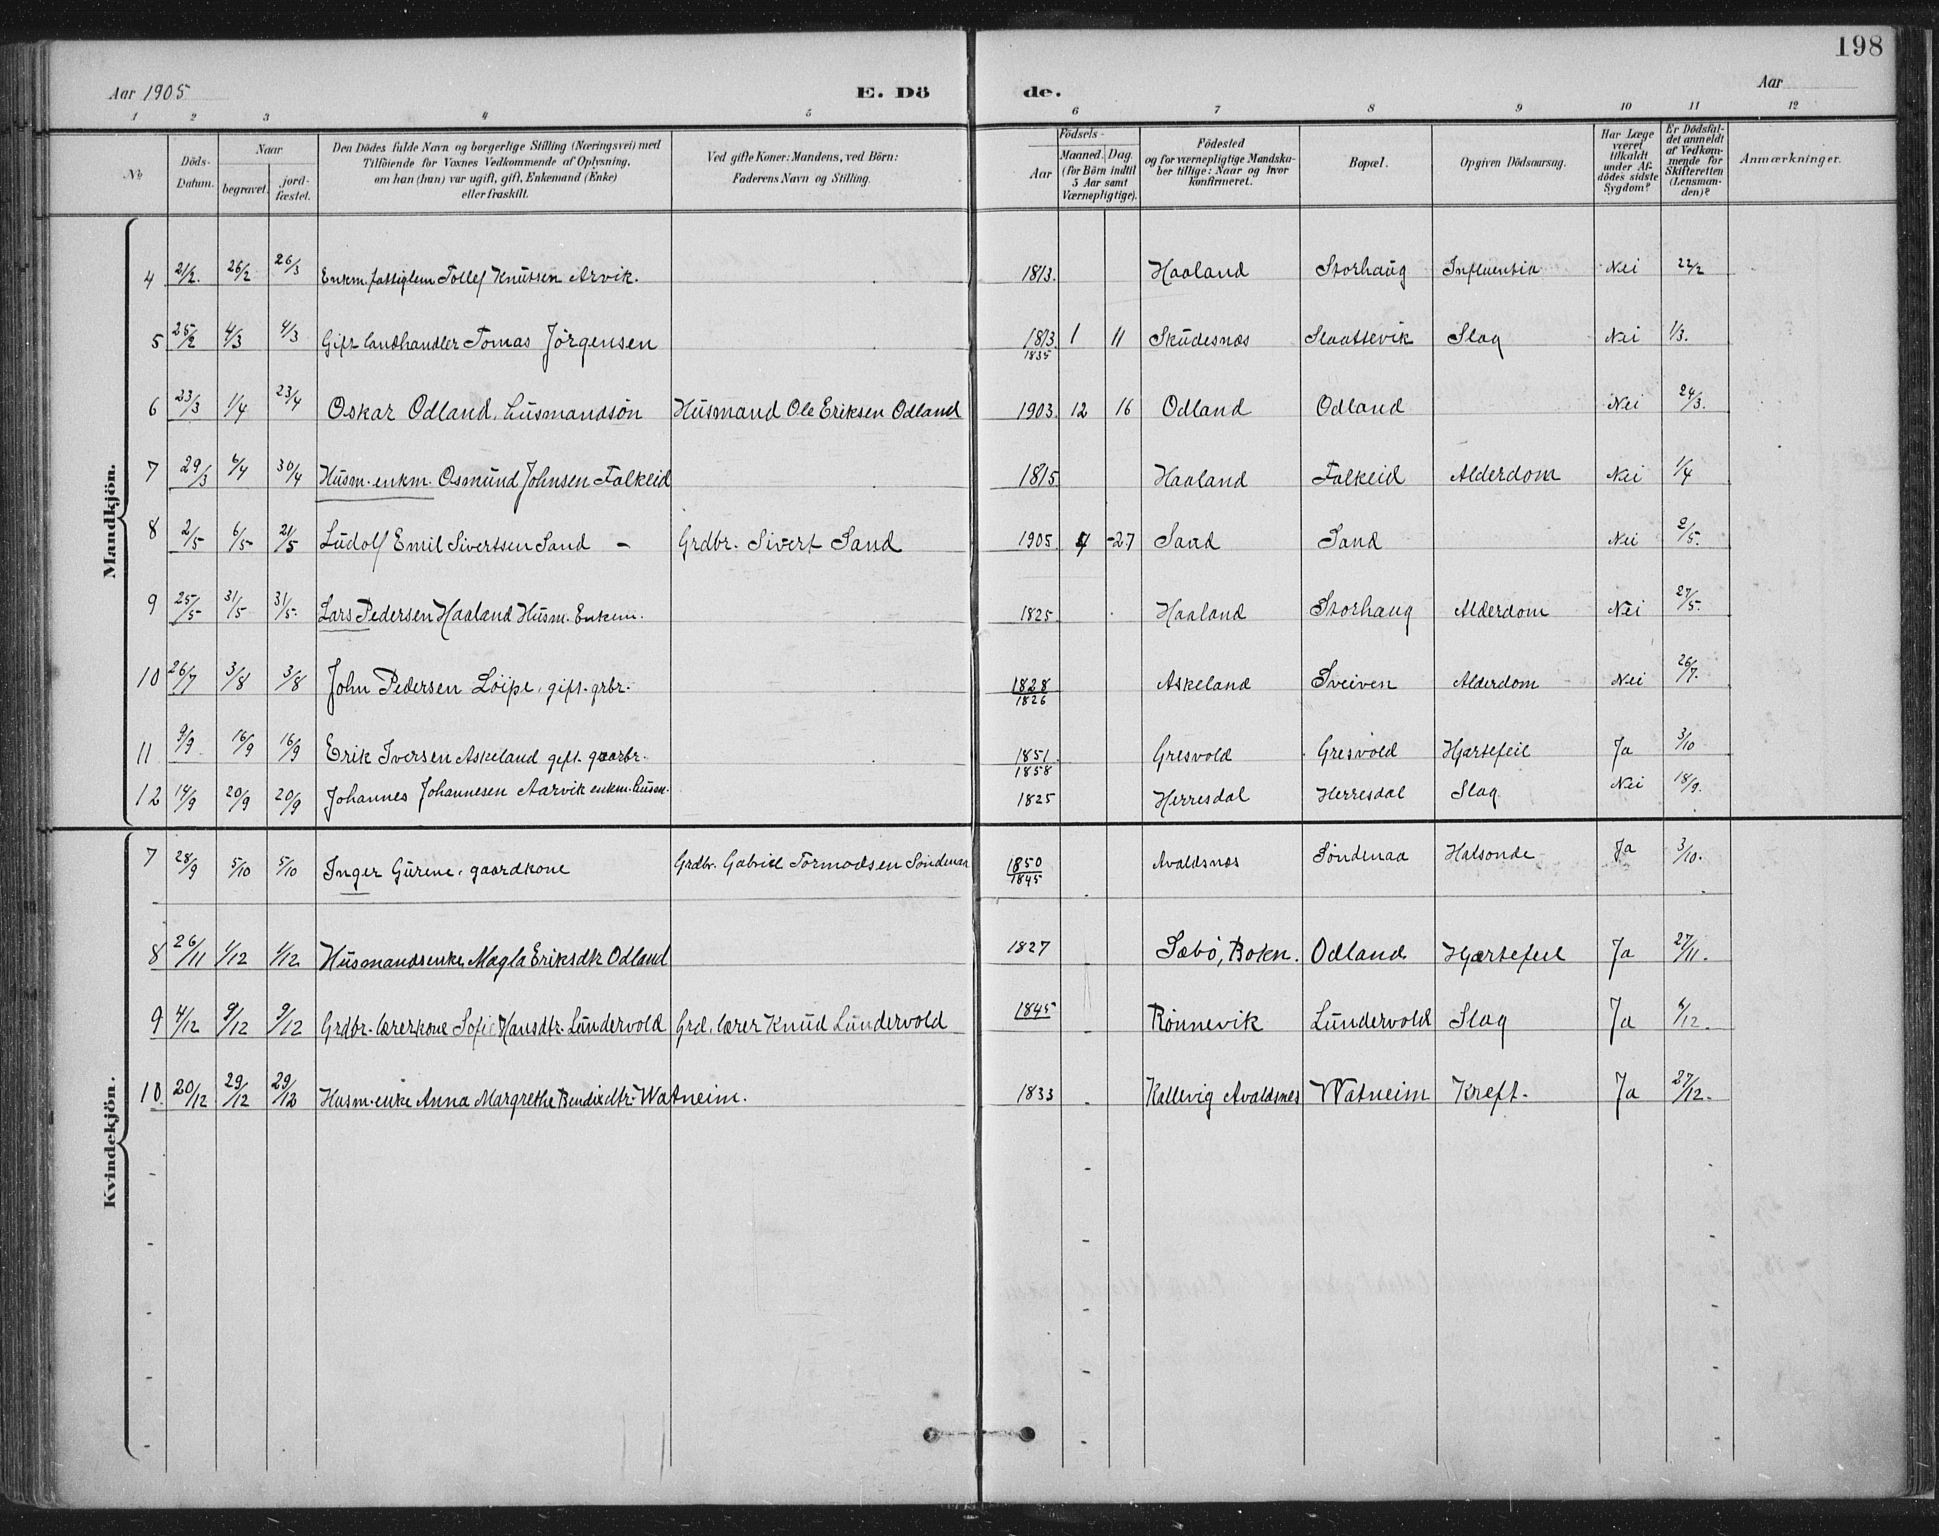 198
Aar 1905
E. Dö de.
Aar
1 2 3 4 5 6 7 8 9 10 11 12
No
Döds-Datum.
Naar
begravet.
jord-fæstet.
Den Dödes fulde Navn og borgerlige Stilling (Næringsvei) med
Tilföiende for Voxnes Vedkommende af Oplysning,
om han (hun) var ugift, gift, Enkemand (Enke)
eller fraskilt.
Ved gifte Koner: Mandens, ved Börn:
Faderens Navn og Stilling.
Födsels-
Aar
Maaned. Dag.
(for Börn indtil
5 Aar samt
Værnepligtige).
Födested
og for værnepligtige Mandska-
ber tillige: Naar og hvor
konfirmeret.
Bopæl.
Opgiven Dödsaarsag.
Har Læge
været
tilkaldt
under Af-
dödes sidste
Sygdom?
Er Dödsfal-
det anmeldt
af Vedkom-
mende for
Skifteretten
(Lensman-
den)?
Anmærkninger.
Mandkjön.
4 21/2. 26/2 26/3 Enkm. fattiglem Tollef Knutsen Arvik. 1813. Haaland Storhaug Influentia Nei 22/2
5 25/2 4/3 4/3 Gift landhandler Tomas Jörgensen 1813. 1835 1 11 Skudesnæs Slaattevik Slag Nei 1/3.
6 23/3 1/4 23/4 Oskar Odland, husmandsön Husmand Ole Eriksen Odland 1903. 12 16 Odland Odland Nei 24/3.
7 29/3 6/4 30/4 Husm. enkm. Osmund Johnsen Falkeid 1815. Haaland Falkeid Alderdom Nei 1/4
8 2/5 6/5 21/5 Ludolf Emil Sivertsen Sand – Grdbr. Sivert Sand 1905 4 -27 Sand Sand Nei 2/5.
9 25/5 31/5 31/5. Lars Pedersen Haaland Husm. Enkem. 1825 Haaland Storhaug Alderdom Nei 27/5.
10 26/7 3/8 3/8 John Pedersen Löipe, gift. grbr. 1828 1826 Askeland Sveiven Alderdom Nei 26/7.
11 9/9 16/9 16/9 Erik Iversen Askeland gift. gaarbr. 1851. 1858 Gresvold Gresvold Hjartefeil Ja 3/10
12 14/9 20/9 20/9 Johannes Johannesen Aarvik enkm. husm. 1825 Herresdal Herresdal Slag Nei 18/9.
Kvindekjön.
7 28/9 5/10 5/10 Inger Gurine, gaardkone Grdbr. Gabriel Tormodsen Söndenaa 1850 1845 Avaldsnæs Söndenaa Halsonde Ja 3/10.
8 26/11 1/12 1/12 Husmandsenke Magla Eriksdtr Odland 1827 Sæbö, Bokn. Odland Hjærtefeil Ja 27/11.
9 4/12 9/12 9/12 Grdbr.-lærerkone Sofie Hansdtr. Lundervold Grd. lærer Knud Lundervold 1845 Rönnevik Lundervold Slag Ja 6/12.
10. 20/12 29/12 29/12 Husm-enke Anna Margrethe Bendixdtr. Watneim. 1833 Kallevig Avaldsnes Watneim Kreft. Ja 27/12.